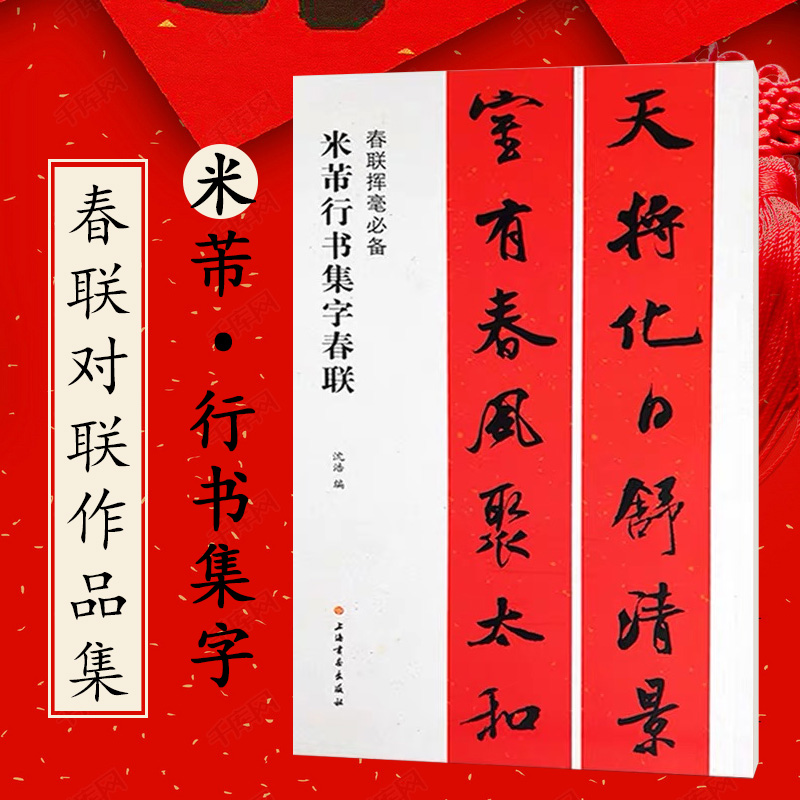 春联对联作品集
米芾·行书集字
春联挥毫必备
米芾行书集字春联
沈浩 编
上海书画出版社
天将化日舒清景
室有春风聚太和
千库网